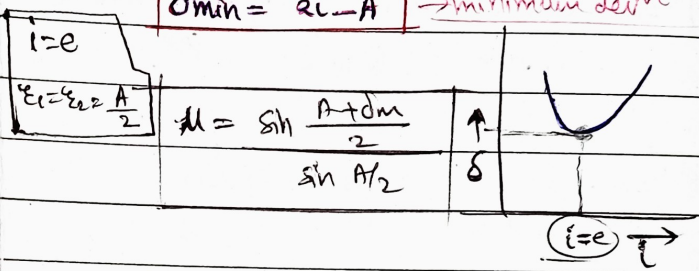 δmin = 2i - A → minimum devn
i=e
r1 = r2 = A/2
μ = sin A+δm/2
sin A/2
↑
δ
i=e →
i